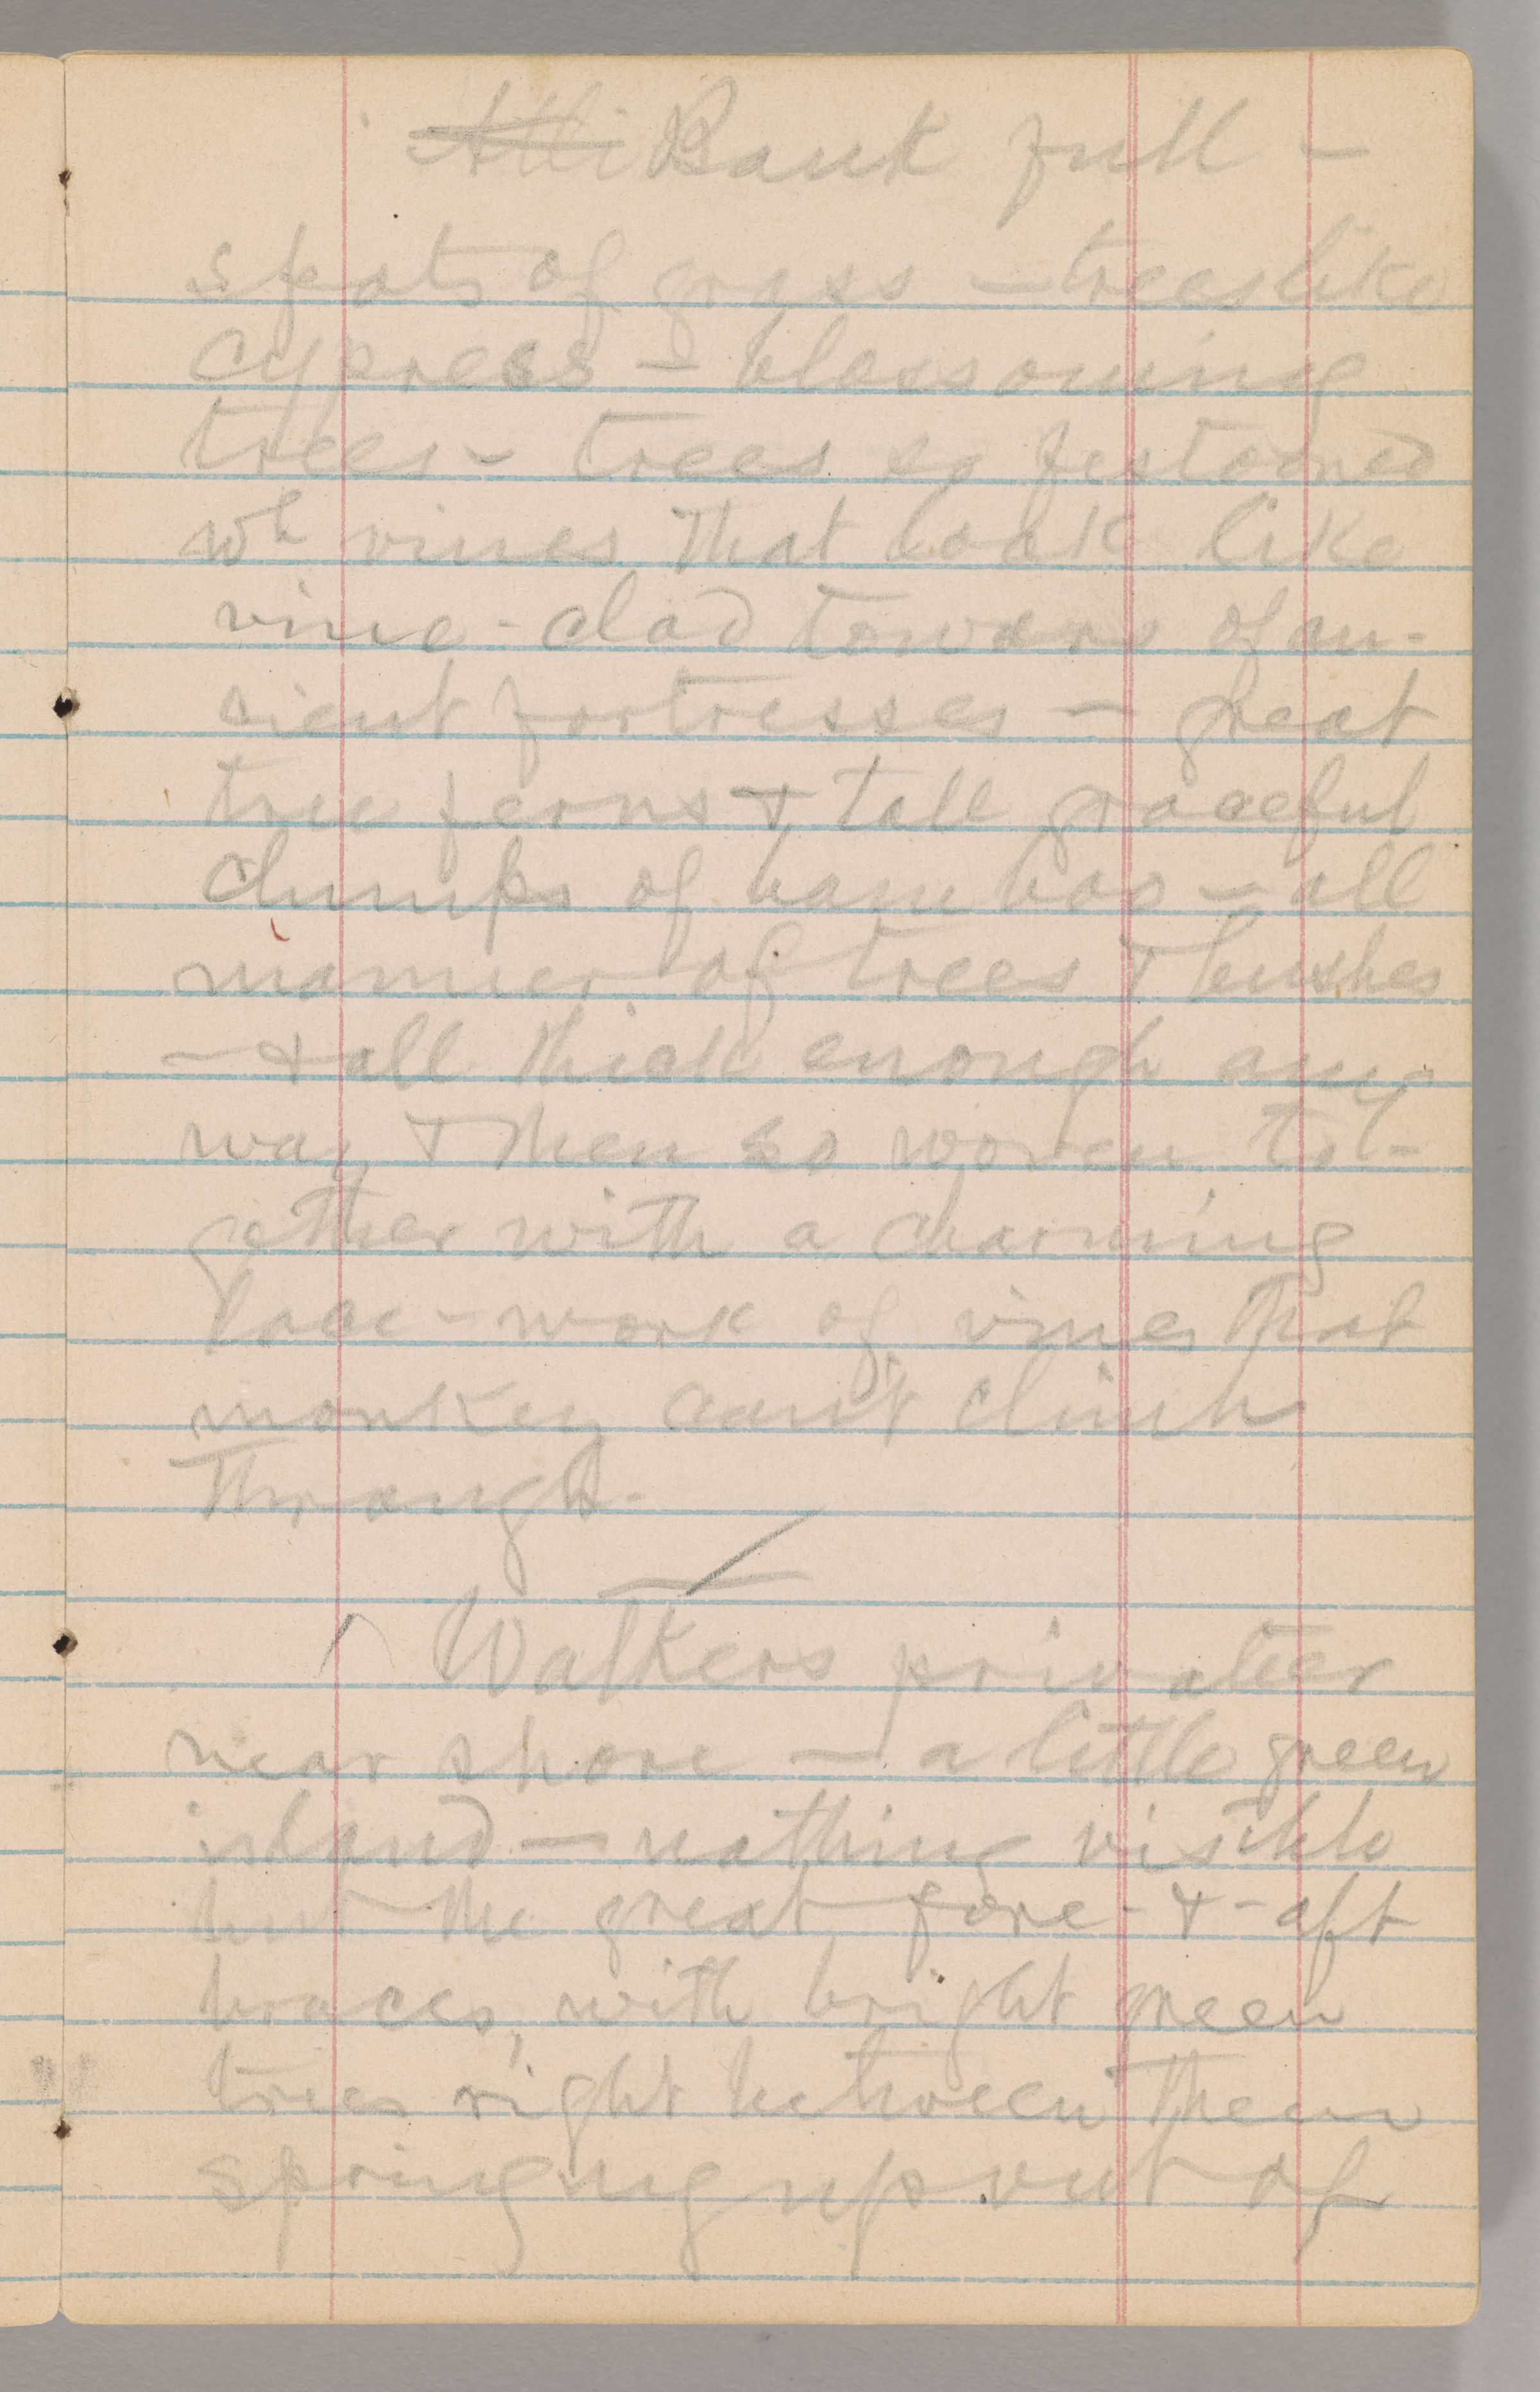 Bank full —
spots of grass — trees like
cypress — blossoming
trees — trees so festooned
wh vines that look like
vine-clad towers of an-
cient fortresses — great
tree ferns & tall graceful
clumps of bamboo — all
manner of trees & bushes
— & all thick enough any-
way & then so woven to-
gether with a charming
lace-work of vines that
monkey can't climb
through.
Walkers privateer
near shore — a little green
island — nothing visible
but the great fore-&-aft
braces, with bright green
trees right between them
springing up out of